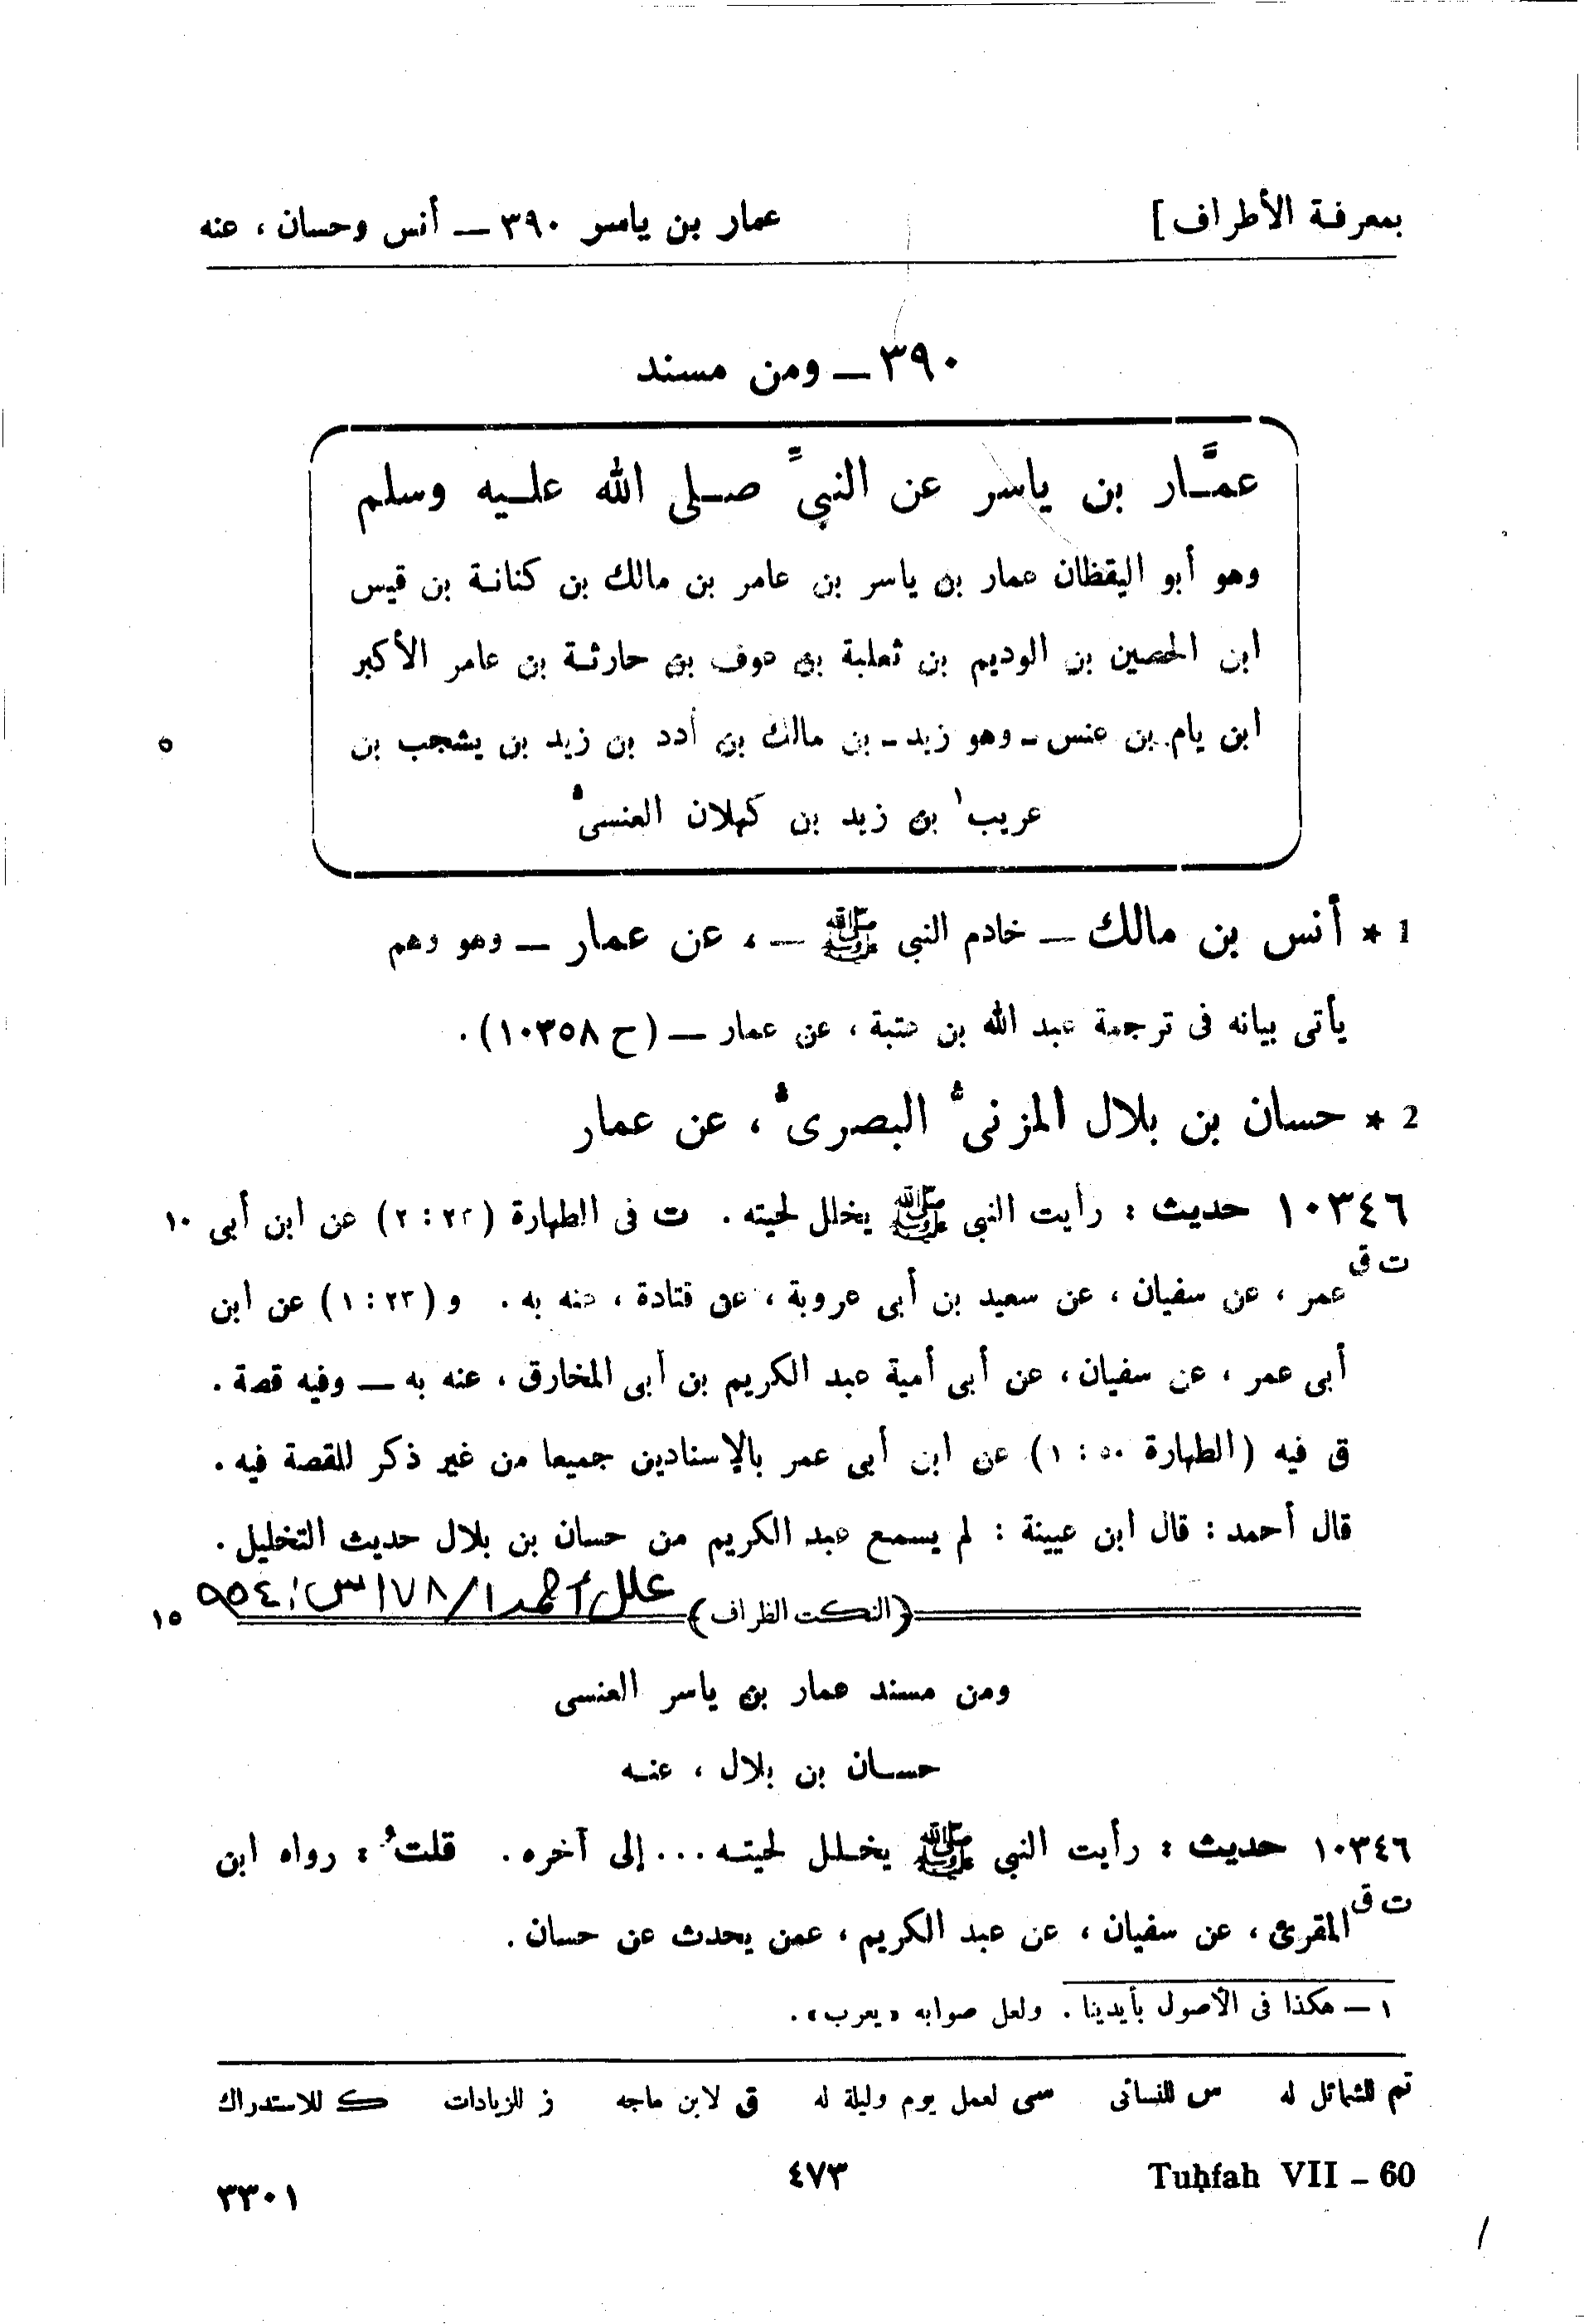 بمعرفة الأطراف] عمار بن ياسر ٣٩٠ — أنس وحسان ، عنه
٣٩٠ — ومن مسند
عمَّار بن ياسر عن النبيِّ صلى الله عليه وسلم
وهو أبو اليقظان عمار بن ياسر بن عامر بن مالك بن كنانة بن قيس
ابن الحصين بن الوديم بن ثعلبة بن عوف بن حارثة بن عامر الأكبر
ابن يام بن عنس - وهو زيد - بن مالك بن أدد بن زيد بن يشجب بن
٥
عريب١ بن زيد بن كهلان العنسىُّ
1 * أنس بن مالك — خادم النبي ﷺ — ، عن عمار — وهو وهم
يأتى بيانه فى ترجمة عبد الله بن عتبة ، عن عمار — (ح ١٠٣٥٨) .
2 * حسان بن بلال المزنىُّ البصرىُّ ، عن عمار
١٠٣٤٦ حديث : رأيت النبي ﷺ يخلل لحيته . ت فى الطهارة (٢٣ : ٢) عن ابن أبى ١٠
ت ق
عمر ، عن سفيان ، عن سعيد بن أبى عروبة ، عن قتادة ، عنه به . و (٢٣ : ١) عن ابن
أبى عمر ، عن سفيان ، عن أبى أمية عبد الكريم بن أبى المخارق ، عنه به — وفيه قصة .
ق فيه (الطهارة ٥٠ : ١) عن ابن أبى عمر بالإسنادين جميعا من غير ذكر للقصة فيه .
قال أحمد : قال ابن عيينة : لم يسمع عبد الكريم من حسان بن بلال حديث التخليل .
علل أحمد ١/١٧٨ س: ٩٥٤
(النكت الظراف) ١٥
ومن مسند عمار بن ياسر العنسى
حسان بن بلال ، عنه
١٠٣٤٦ حديث : رأيت النبي ﷺ يخلل لحيته ... إلى آخره . قلتُ : رواه ابن
ت ق
المقرئ ، عن سفيان ، عن عبد الكريم ، عمن يحدث عن حسان .
١ — هكذا فى الأصول بأيدينا . ولعل صوابه «يعرب» .
تم للشمائل له س للنسائى سى لعمل يوم وليلة له ق لابن ماجه ز للزيادات ك للاستدراك
Tuḥfah VII – 60 ٤٧٣ ٣٣٠١